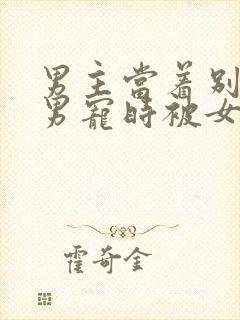 男主當着别
男寵時被女
霍奇金